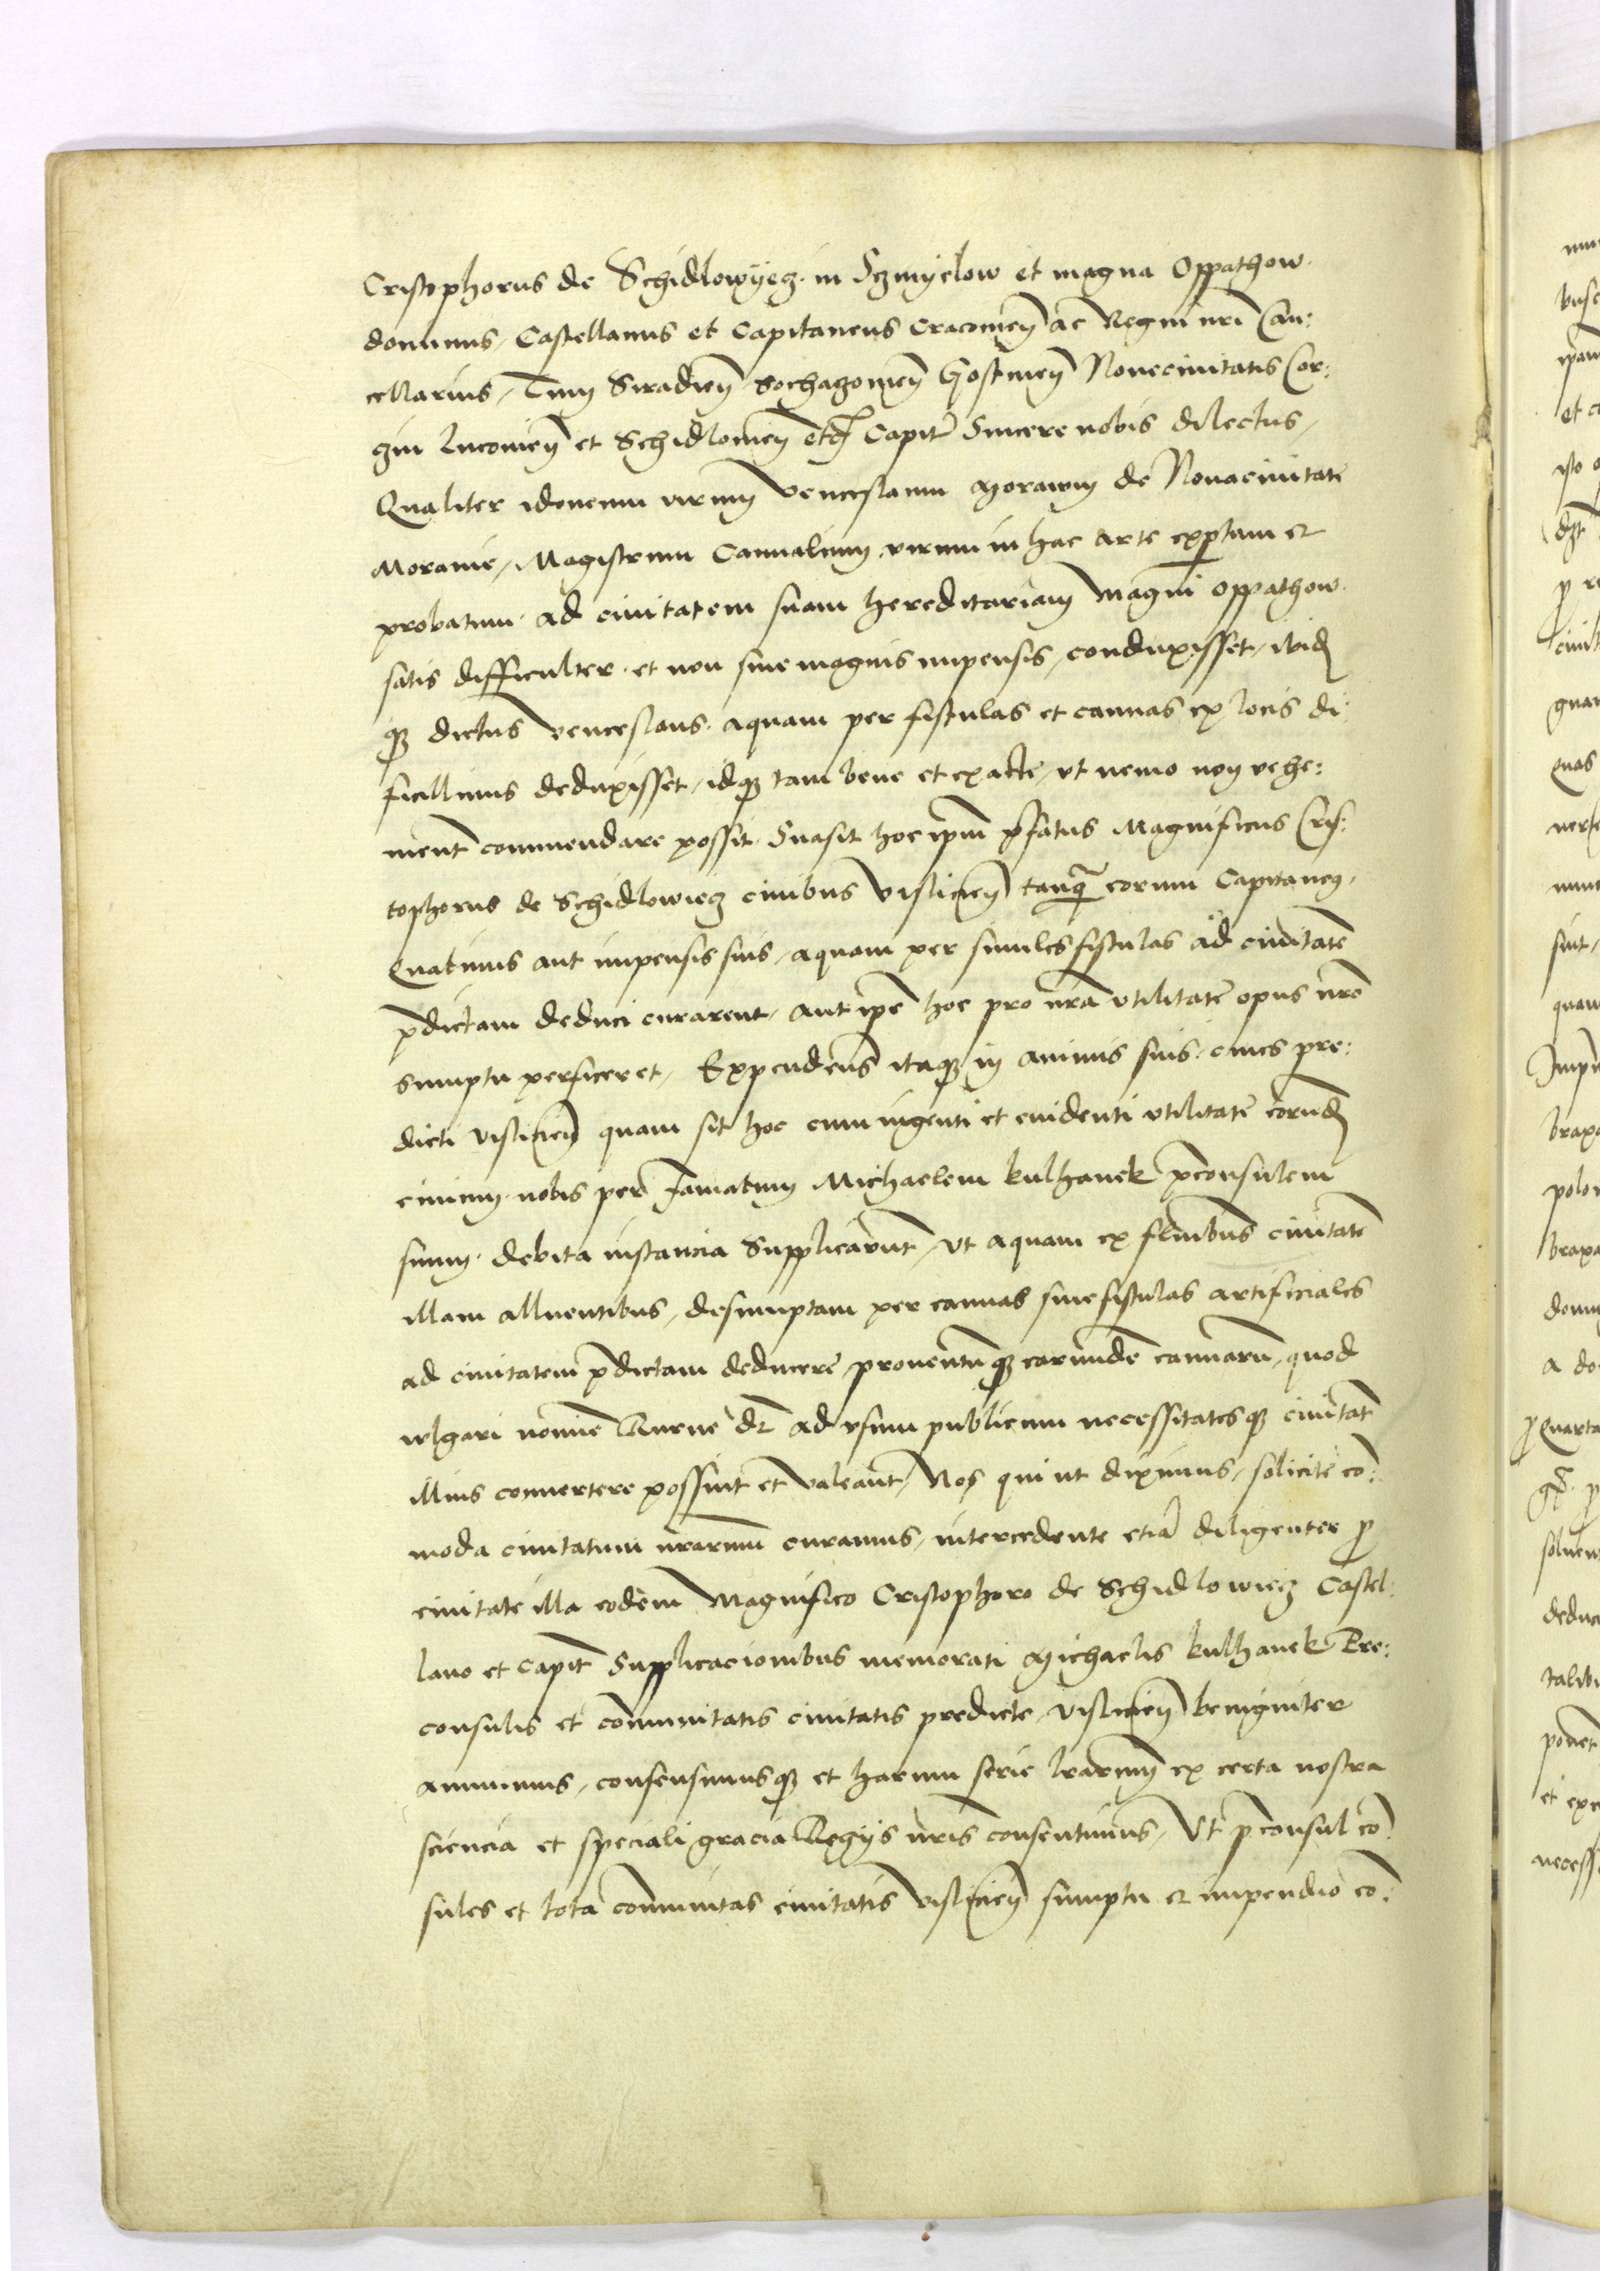 Cristophorus de Schidlowyecz in Czmyelow et magna Oppathow
dominus, Castellanus et Capitaneus Cracovieñ ac Regni nrī Can:
cellarius, Tum Siradieñ Sochazovieñ Gostinieñ Novecivitatis Cor:
zin Lucovieñ et Schidlovieñ etc Capits Sincere nobis dilectus,
Qualiter idoneum virum Venceslaum Moravum de Novacivitate
Moravie, Magistrum Cannalium, virum in hac arte expertum et
probatum ad civitatem suam hereditariam Magni Oppathow
satis difficulter et non sine magnis impensis, conduxisset, ibid
qz dictus Venceslaus aquam per fistulas et cannas ex locis di
ficillimis deduxisset, idqz tam bene et exacte, ut nemo non vehe:
ment commendare possit. Suasit hoc ipm pfatus Magnificus Cris:
tophorus de Schidlowiecz civibus Visliciēñ tanq̄ eorum Capitaneus,
Quatinus aut impensis suis, aquam per similes fistulas ad civitatē
pdictam deduci curarent, aut ipē hoc pro nrā utilitatē opus nrō
sumptu perficeret, Expendens itaqz in animis suis cives pre:
dicti Visliciēñ quam sit hoc cum ingenti et evidenti utilitatē eorūd
civium, nobis per famatum Michaelem Kulhanek pconsulem
suum debita instancia Supplicarūt, ut aquam ex fluvibus civitatē
illam alluentibus, desumptam per cannas sive fistulas artificiales
ad civitatem pdictam deducere, proventūqz earundē cannarū, quod
vlgari nomine Rurne dr ad usum publicum necessitatesqz civitat
illius convertere possint et valeant, Nos qui ut diximus, solicite cō:
moda civitatum nrārum curamus, intercedente etiā diligenter p
civitate illa eodem Magnifico Cristophoro de Schidlowiecz Castel:
lano et Capit Supplicacionibus memorati Michaelis Kulhanek Pre:
consulis et cōmunitatis civitatis predicte Visliciēñ benigniter
annuimus, consensimusqz et harum serie lrārum ex certa nostra
sciencia et speciali gracia Regijs nrīs consentimus, Ut pconsul cō
sules et tota cōmunitas civitatis Visliciēñ sumptu et impendio cō: